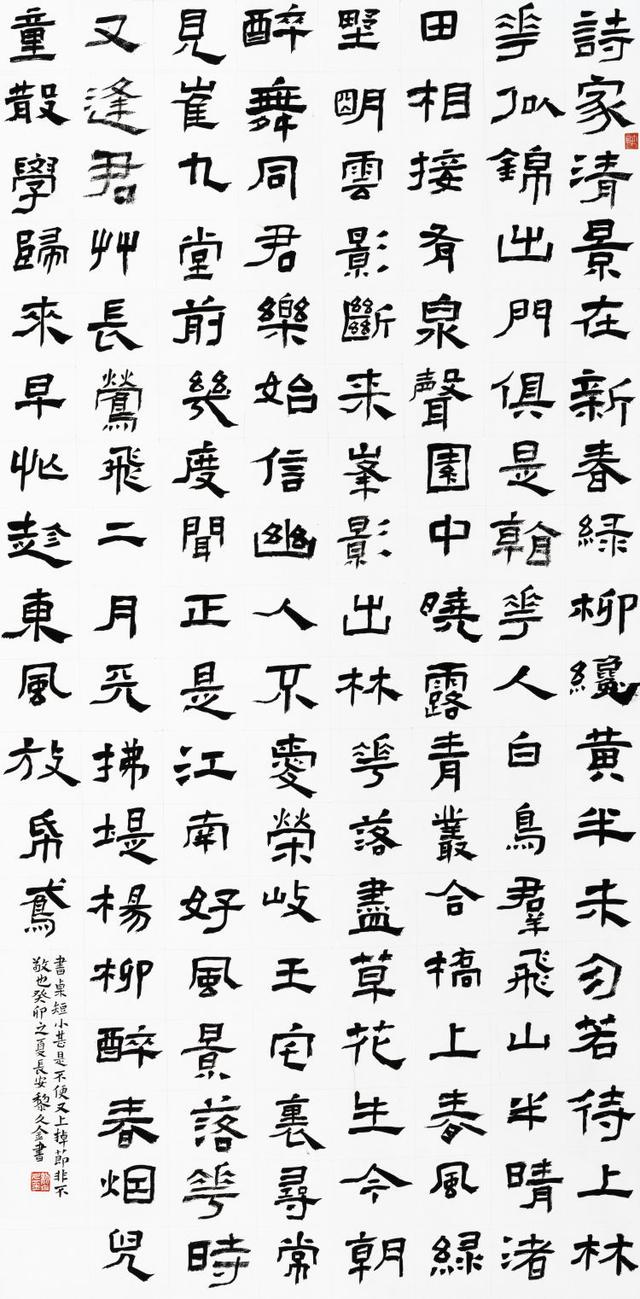 詩家清景在新春綠柳纔黃半未勻若待上林
華似錦出門俱是看華人白鳥羣飛山半晴渚
田相接有泉聲園中曉露青叢合橋上春風綠
野朙雲影斷来峯影出林華落盡草花生今朝
醉舞同君樂始信幽人不愛榮岐王宅裏尋常
見崔九堂前幾度聞正是江南好風景落華時
又逢君艸長鶯飛二月天拂堤楊柳醉春烟兒
童散學歸來早忙趁東風放帋鳶
書桌短小甚是不便又上掉節非不
敬也癸卯之夏長安黎久金書